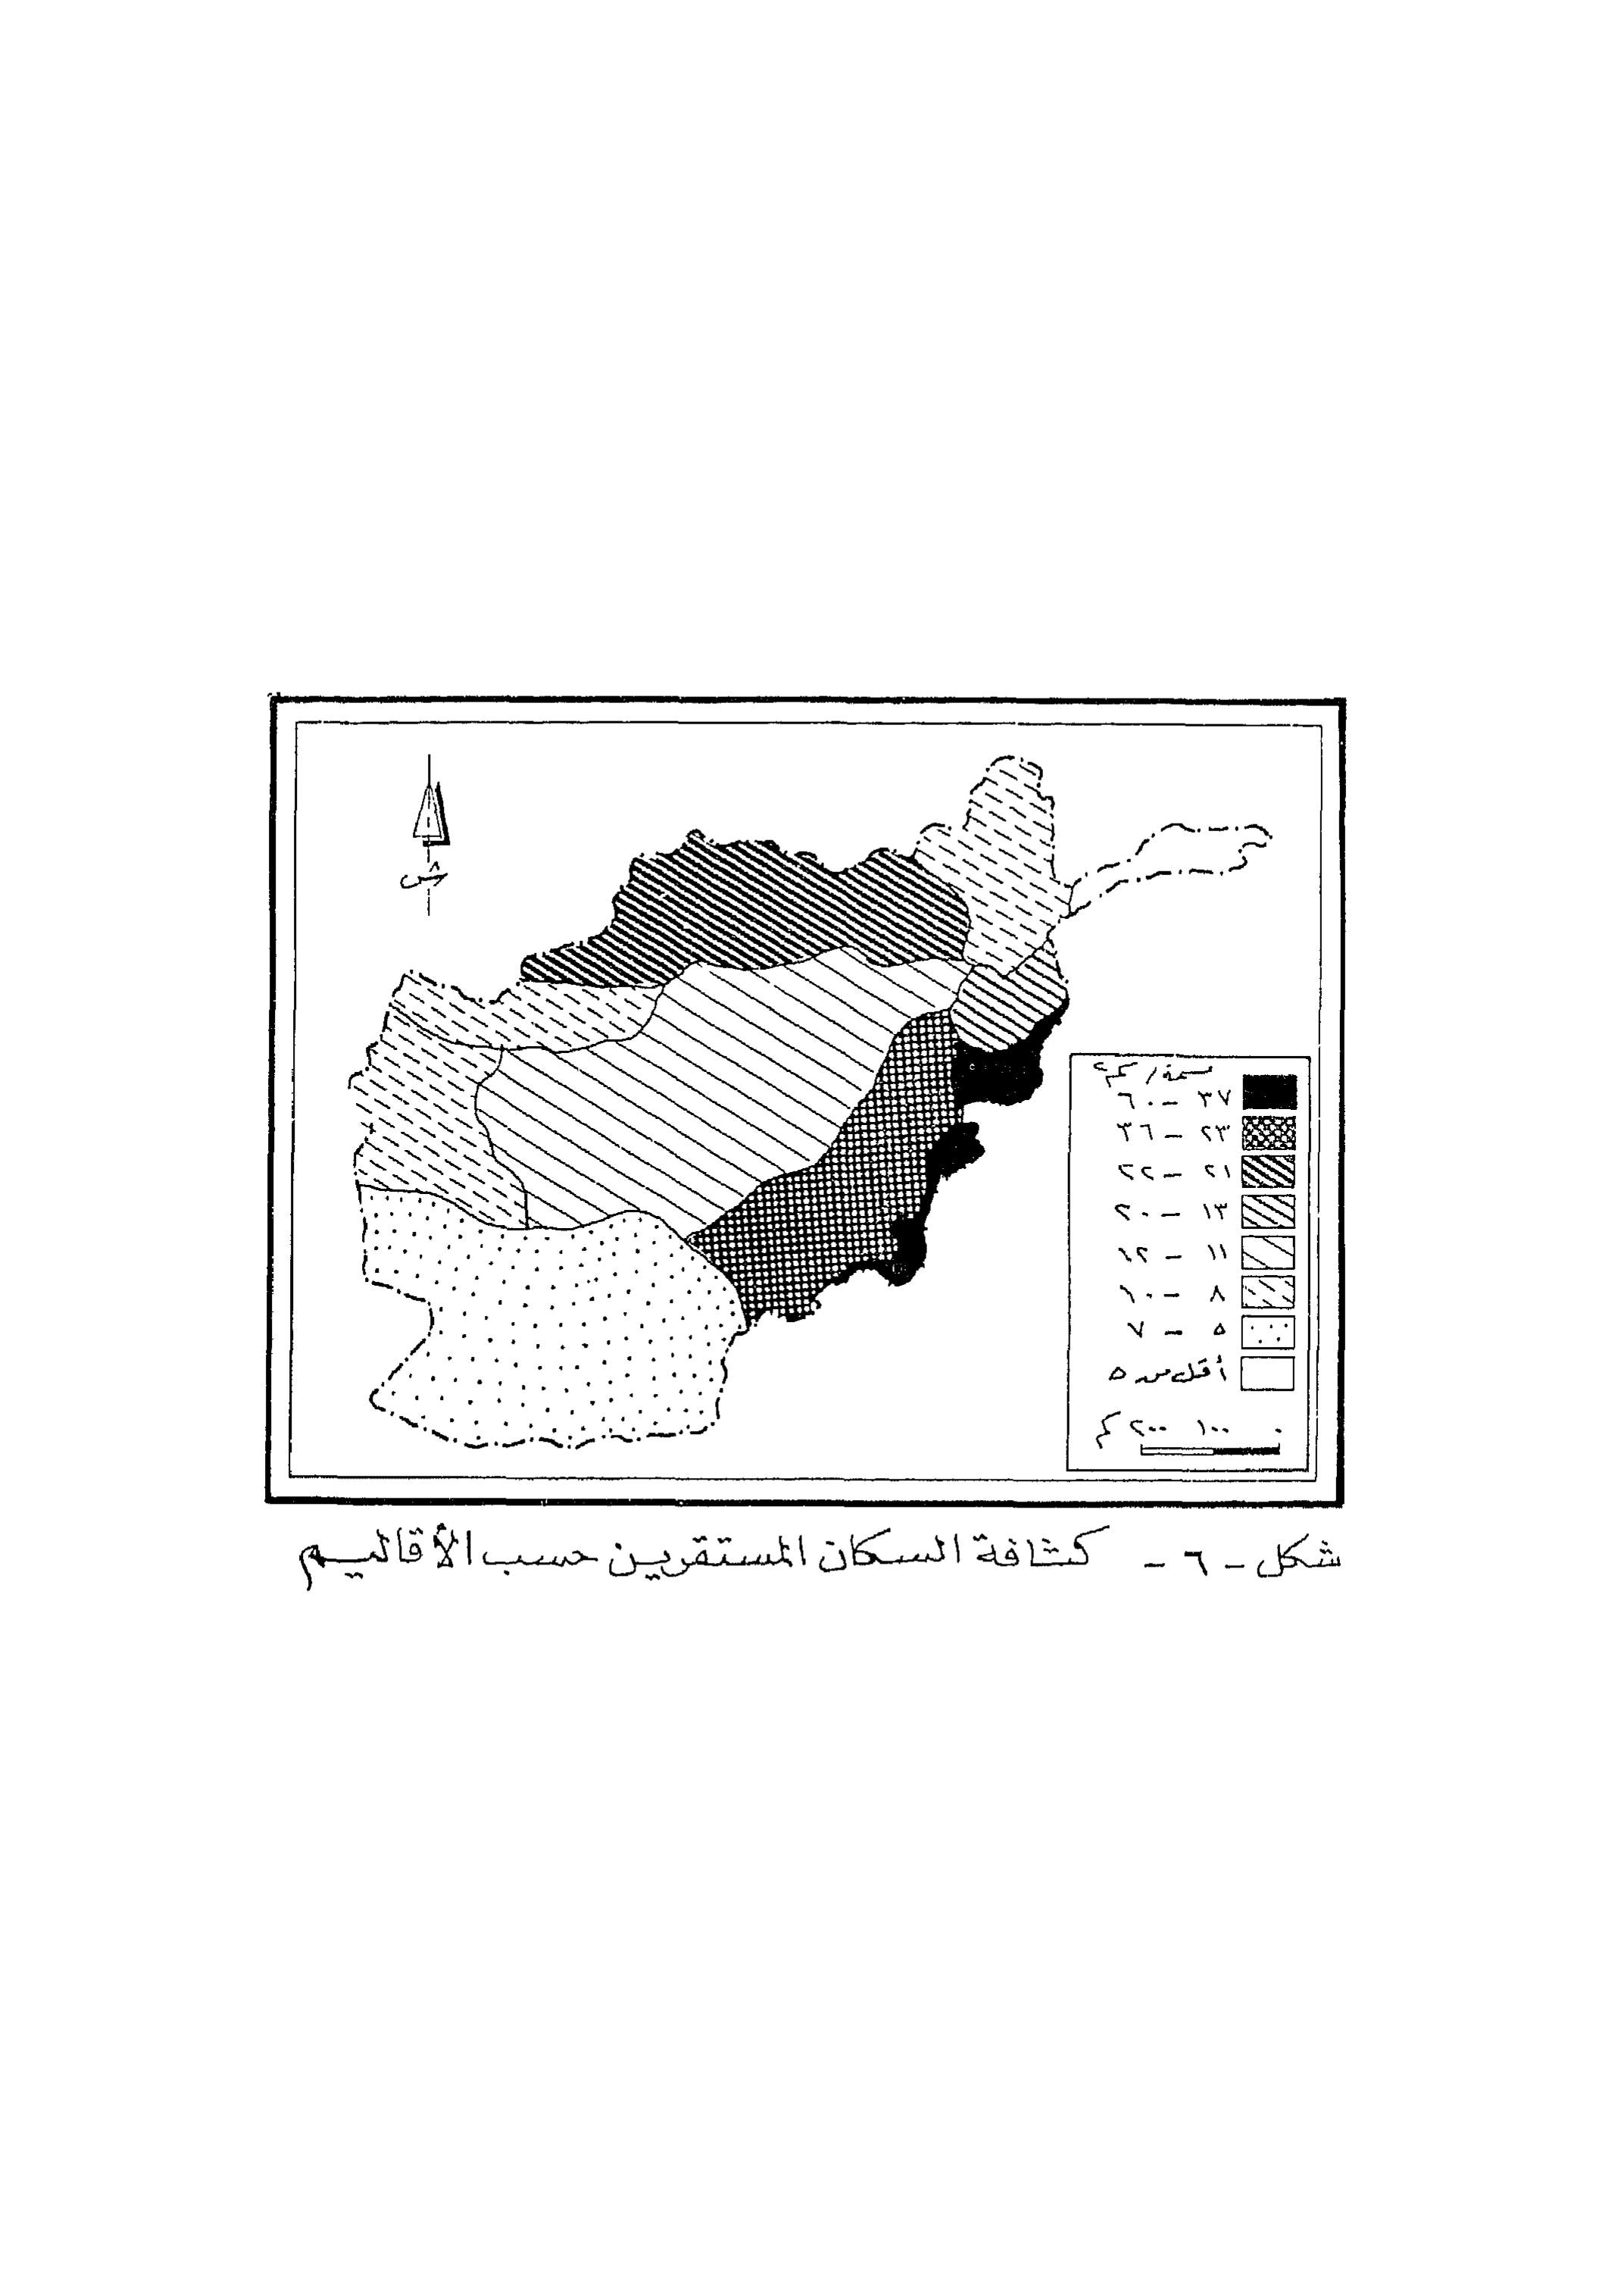 ش
نسمة/كم٢
٣٧ - ٦٠
٢٣ - ٣٦
٢١ - ٢٢
١٣ - ٢٠
١١ - ١٢
٨ - ١٠
٥ - ٧
أقل من ٥
٠ ١٠٠ ٢٠٠ كم
شكل - ٦ - كثافة السكان المستقرين حسب الأقاليم